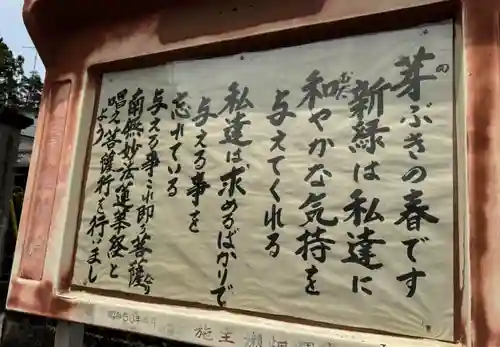 芽ぶきの春です
新緑は私達に
和やかな気持を
与えてくれる
私達は求めるばかりで
与える事を
忘れている
与える事これ即ち菩薩心なり
南無妙法蓮華経と
唱え菩薩行を行いまし
よう
施主